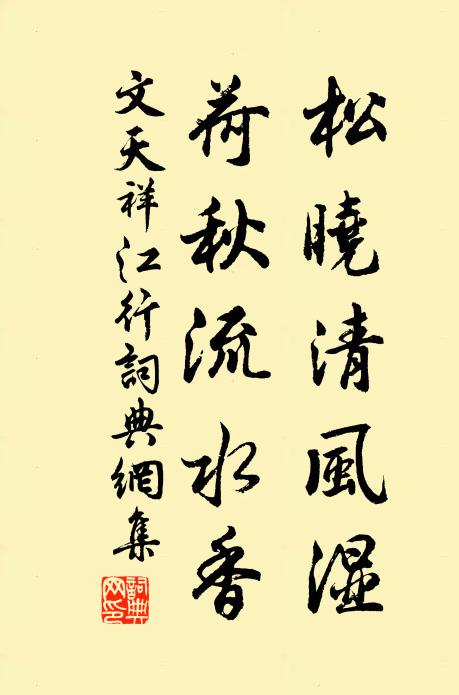 松曉清風濕
荷秋流水香
文天祥江行詞典網集
詞典網印